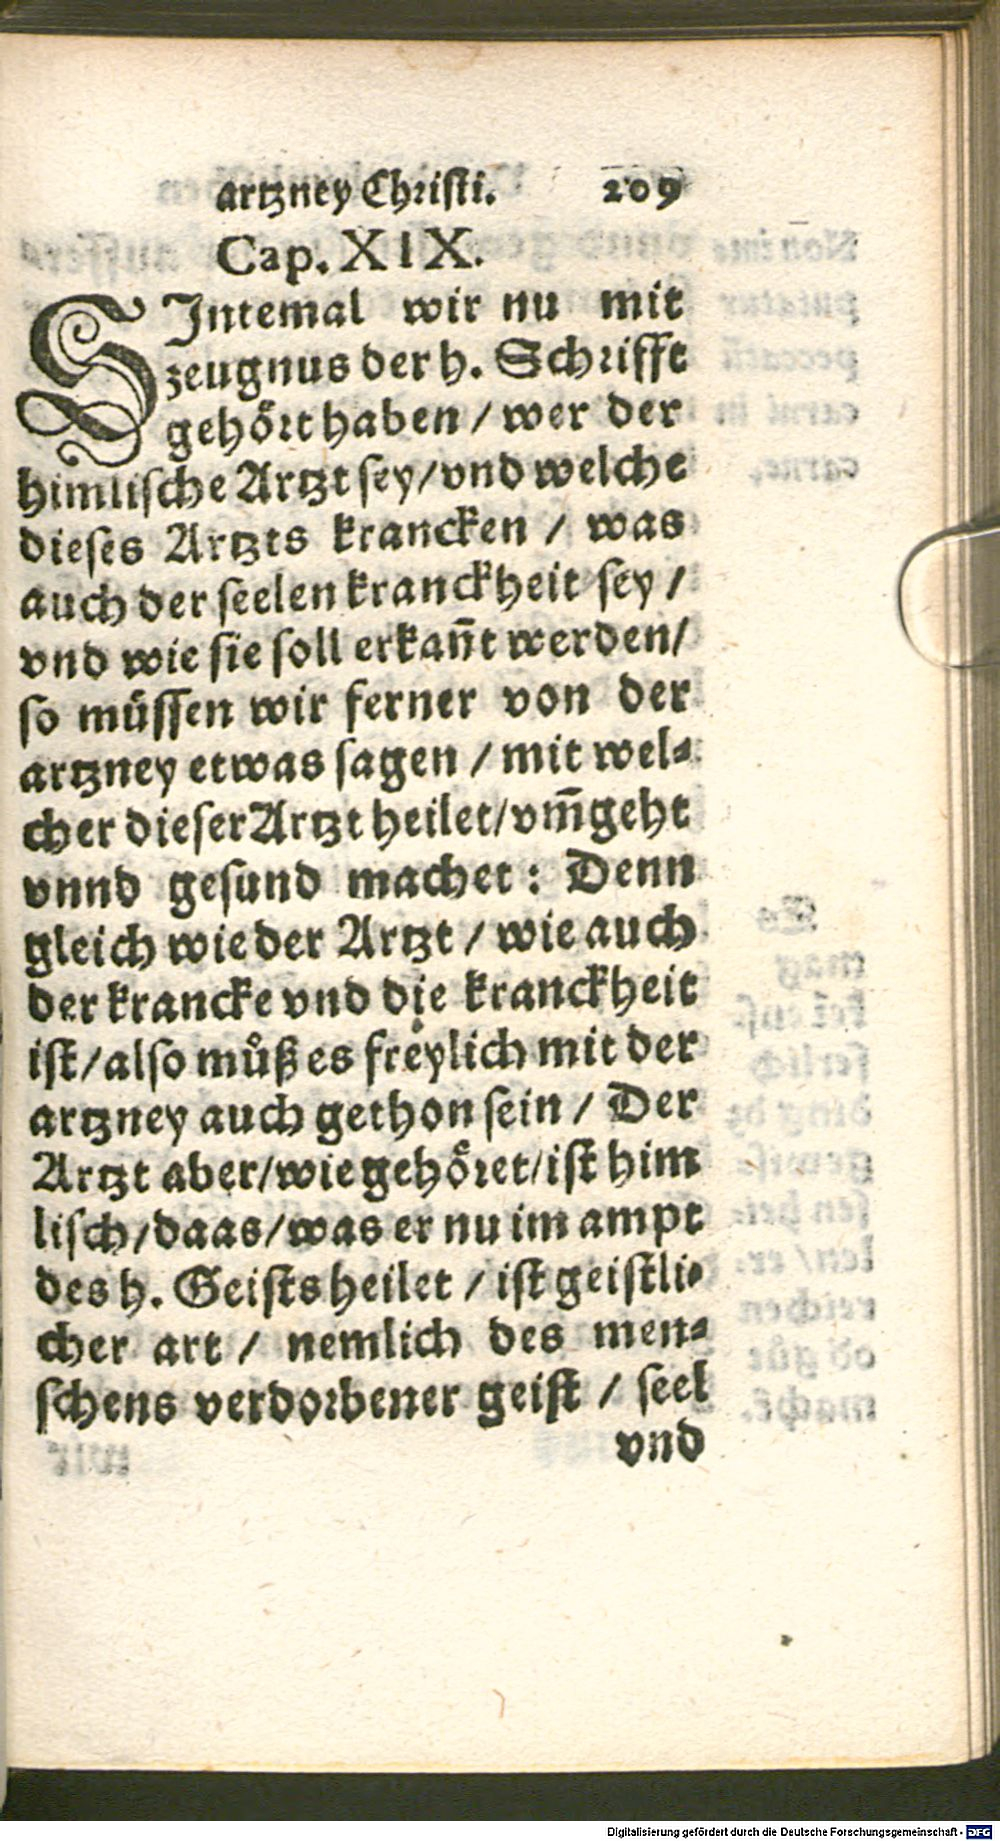 artzney Christi. 209
Cap. XIX.
SIntemal wir nu mit
zeugnus der h. Schrifft
gehöꝛt haben / wer der
himlische Artzt sey/vnd welche
dieses Artzts krancken / was
auch der seelen kranckheit sey /
vnd wie sie soll erkañt werden/
so müssen wir ferner von der
artzney etwas sagen / mit wel⸗
cher dieser Artzt heilet/vm̃geht
vnnd gesund machet : Denn
gleich wie der Artzt / wie auch
der krancke vnd die kranckheit
ist/also můß es freylich mit der
artzney auch gethon sein / Der
Artzt aber/wie gehöꝛet/ist him
lisch/daas/was er nu im ampt
des h. Geists heilet / ist geistli⸗
cher art / nemlich des men⸗
schens verdoꝛbener geist / seel
vnd
Digitalisierung gefördert durch die Deutsche Forschungsgemeinschaft - DFG